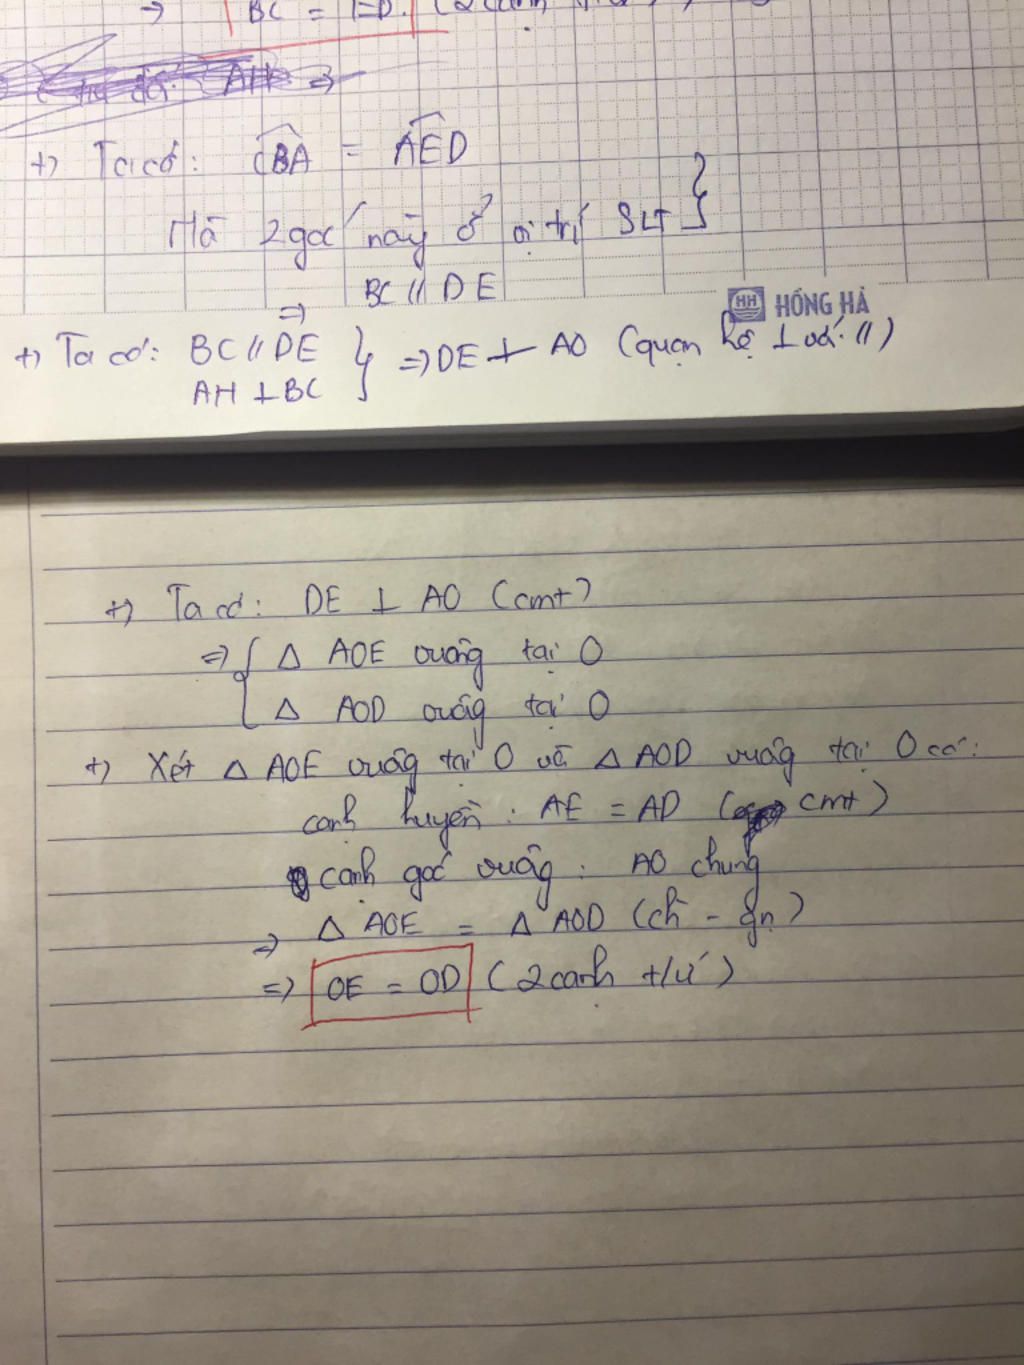 => BC = ED. (2 cạnh
AH =>
+) Ta có: CBA = AED
Mà 2 góc này ở vị trí SLT }
=> BC // DE
HH HỒNG HÀ
+) Ta có: BC // DE } => DE ⊥ AO (quan hệ ⊥ với //)
AH ⊥ BC
+) Ta có: DE ⊥ AO (cmt)
=> { Δ AOE vuông tại O
Δ AOD vuông tại O
+) Xét Δ AOE vuông tại O và Δ AOD vuông tại O có:
cạnh huyền: AE = AD (cmt)
cạnh góc vuông: AO chung
=> Δ AOE = Δ AOD (ch - gn)
=> OE = OD (2 cạnh t/ứ)